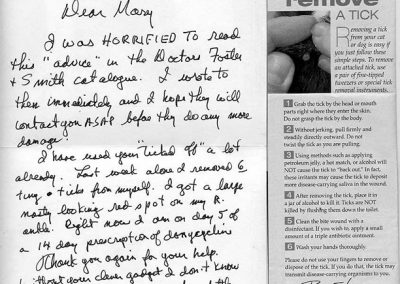 Dear Mary
I was HORRIFIED TO read
this "advice" in the Doctors Foster
+ Smith catalogue. I wrote to
them immediately and I hope they will
contact you ASAP before they do any more
damage.
I have used your "ticked off" a lot
already. Last week alone I removed 6
tiny ticks from myself. I got a large
nasty looking red spot on my R.
ankle. Right now I am on day 5 of
a 14 day prescription of doxycyclin
Thank you again for your help.
Without your clever gadget I don't know
remove
A TICK
Removing a tick
from your cat
or dog is easy if
you just follow these
simple steps. To remove
an attached tick, use
a pair of fine-tipped
tweezers or special tick
removal instruments.
1 Grab the tick by the head or mouth
parts right where they enter the skin.
Do not grasp the tick by the body.
2 Without jerking, pull firmly and
steadily directly outward. Do not
twist the tick as you are pulling.
3 Using methods such as applying
petroleum jelly, a hot match, or alcohol will
NOT cause the tick to "back out". In fact,
these irritants may cause the tick to deposit
more disease-carrying saliva in the wound.
4 After removing the tick, place it in
a jar of alcohol to kill it. Ticks are NOT
killed by flushing them down the toilet.
5 Clean the bite wound with a
disinfectant. If you wish to apply a small
amount of a triple antibiotic ointment.
6 Wash your hands thoroughly.
Please do not use your fingers to remove or
dispose of the tick. If you do that, the tick may
transmit disease-carrying organisms to you.